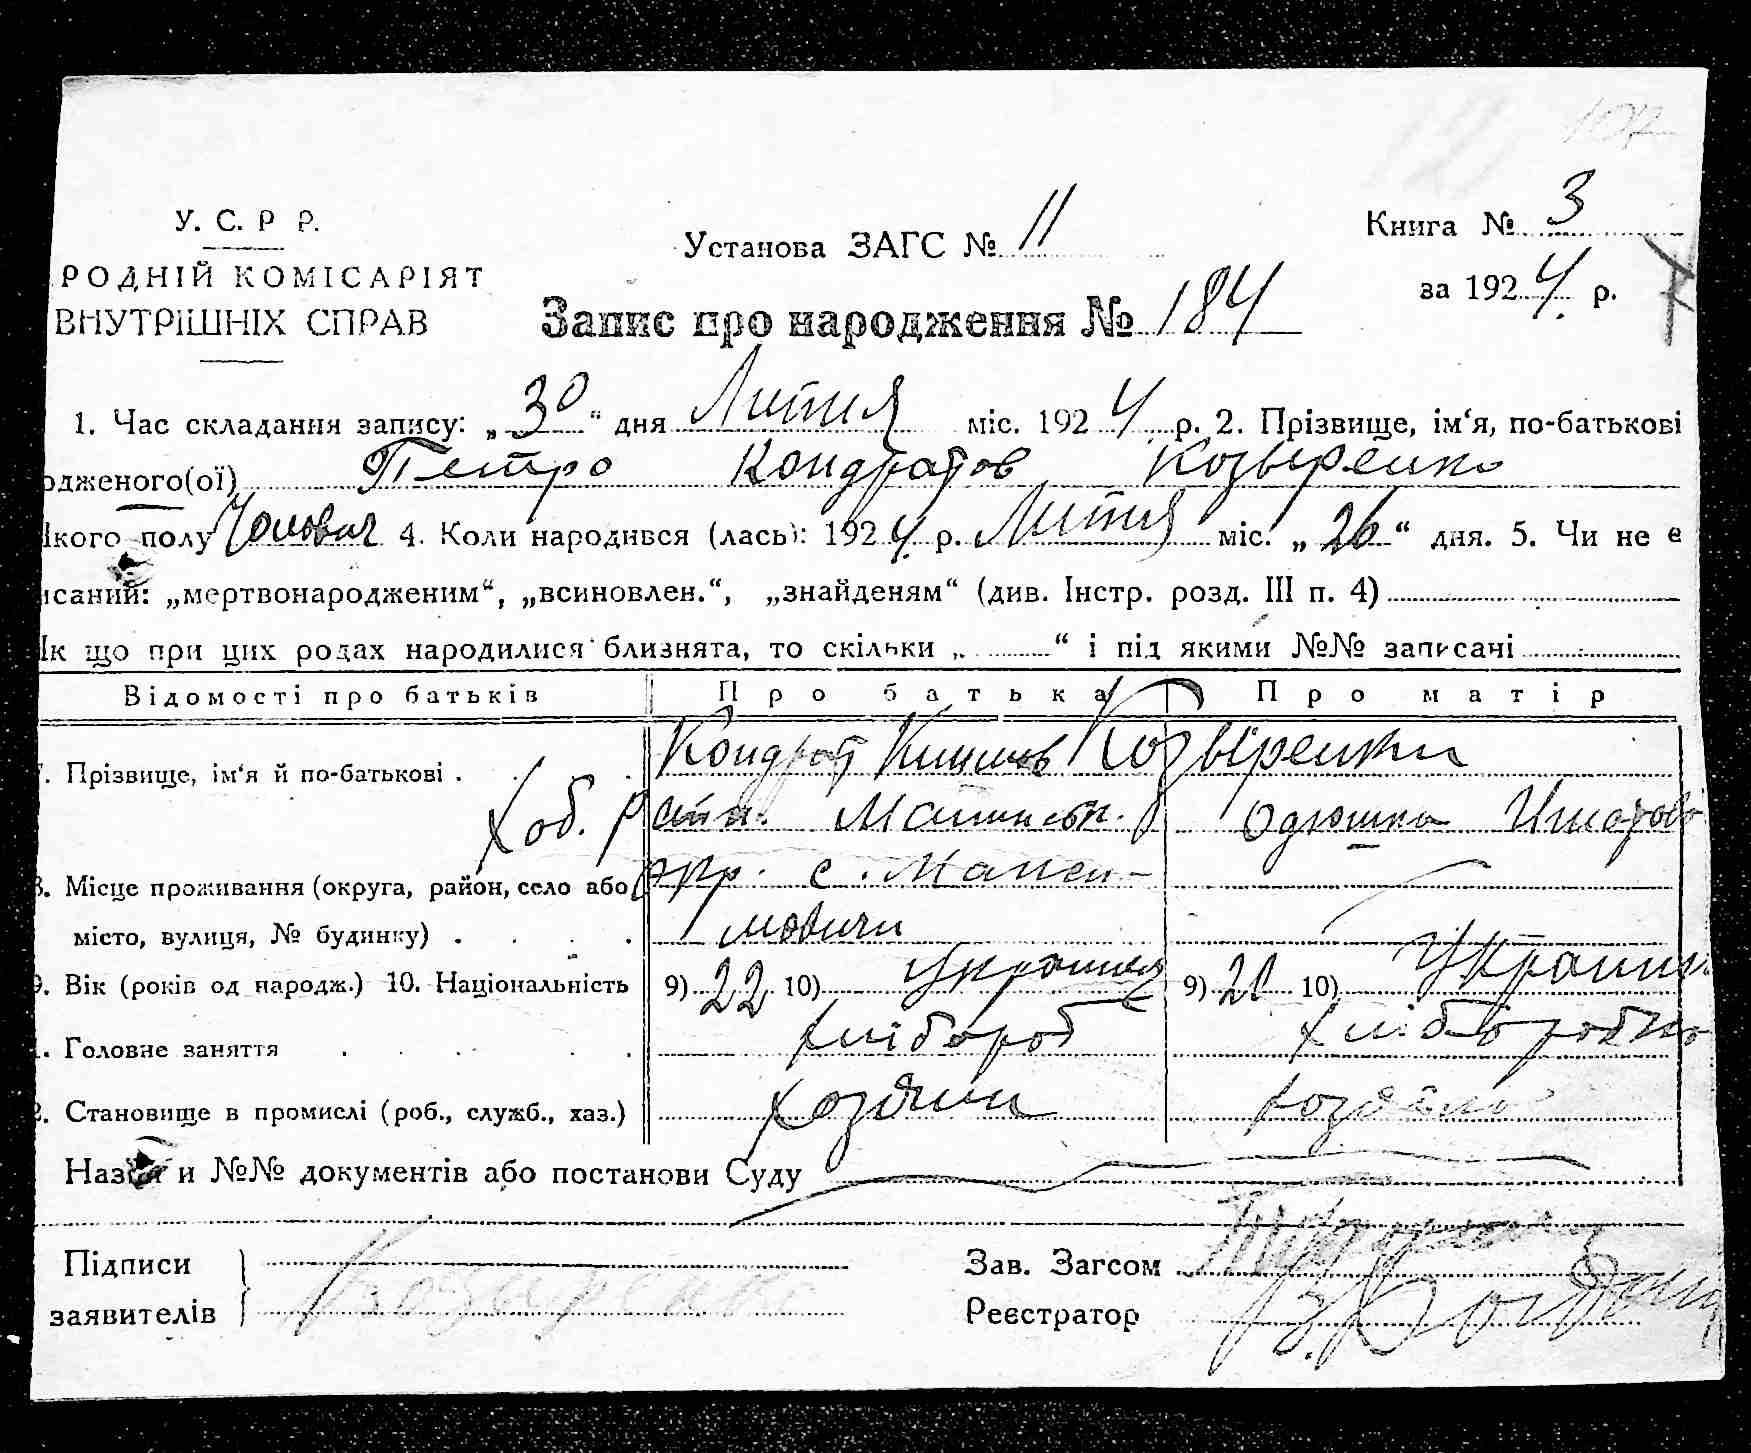 107
У. С. Р Р.
Установа ЗАГС № 11
Книга № 3
РОДНІЙ КОМІСАРІЯТ
за 1924 р.
ВНУТРІШНІХ СПРАВ
Запис про народження № 184
1. Час складання запису: „30“ дня Липня міс. 1924 р. 2. Прізвище, ім‘я, по-батькові
одженого(ої) Петро Кондратов Козыренко
якого полу Чоловіч 4. Коли народився (лась): 1924 р. Липня міс. „26“ дня. 5. Чи не є
исаний: „мертвонародженим“, „всиновлен.“, „знайденям“ (див. Інстр. розд. III п. 4)
Як що при цих родах народилися близнята, то скільки „ “ і під якими №№ записачі
Відомості про батьків Про батька Про матір
7. Прізвище, ім‘я й по-батькові . . . Кондрат Козыренки
Хоб. Р
Одюшка
8. Місце проживання (округа, район, село або окр. с.
місто, вулиця, № будинку) . . . .
9. Вік (років од народж.) 10. Національність 9) 22 10) 9) 21 10)
. Головне заняття . . . . . хлібороб хліборобка
2. Становище в промислі (роб., служб., хаз.) хозяин
Назва и №№ документів або постанови Суду
Підписи
Зав. Загсом
заявителів Козыренко
Реєстратор